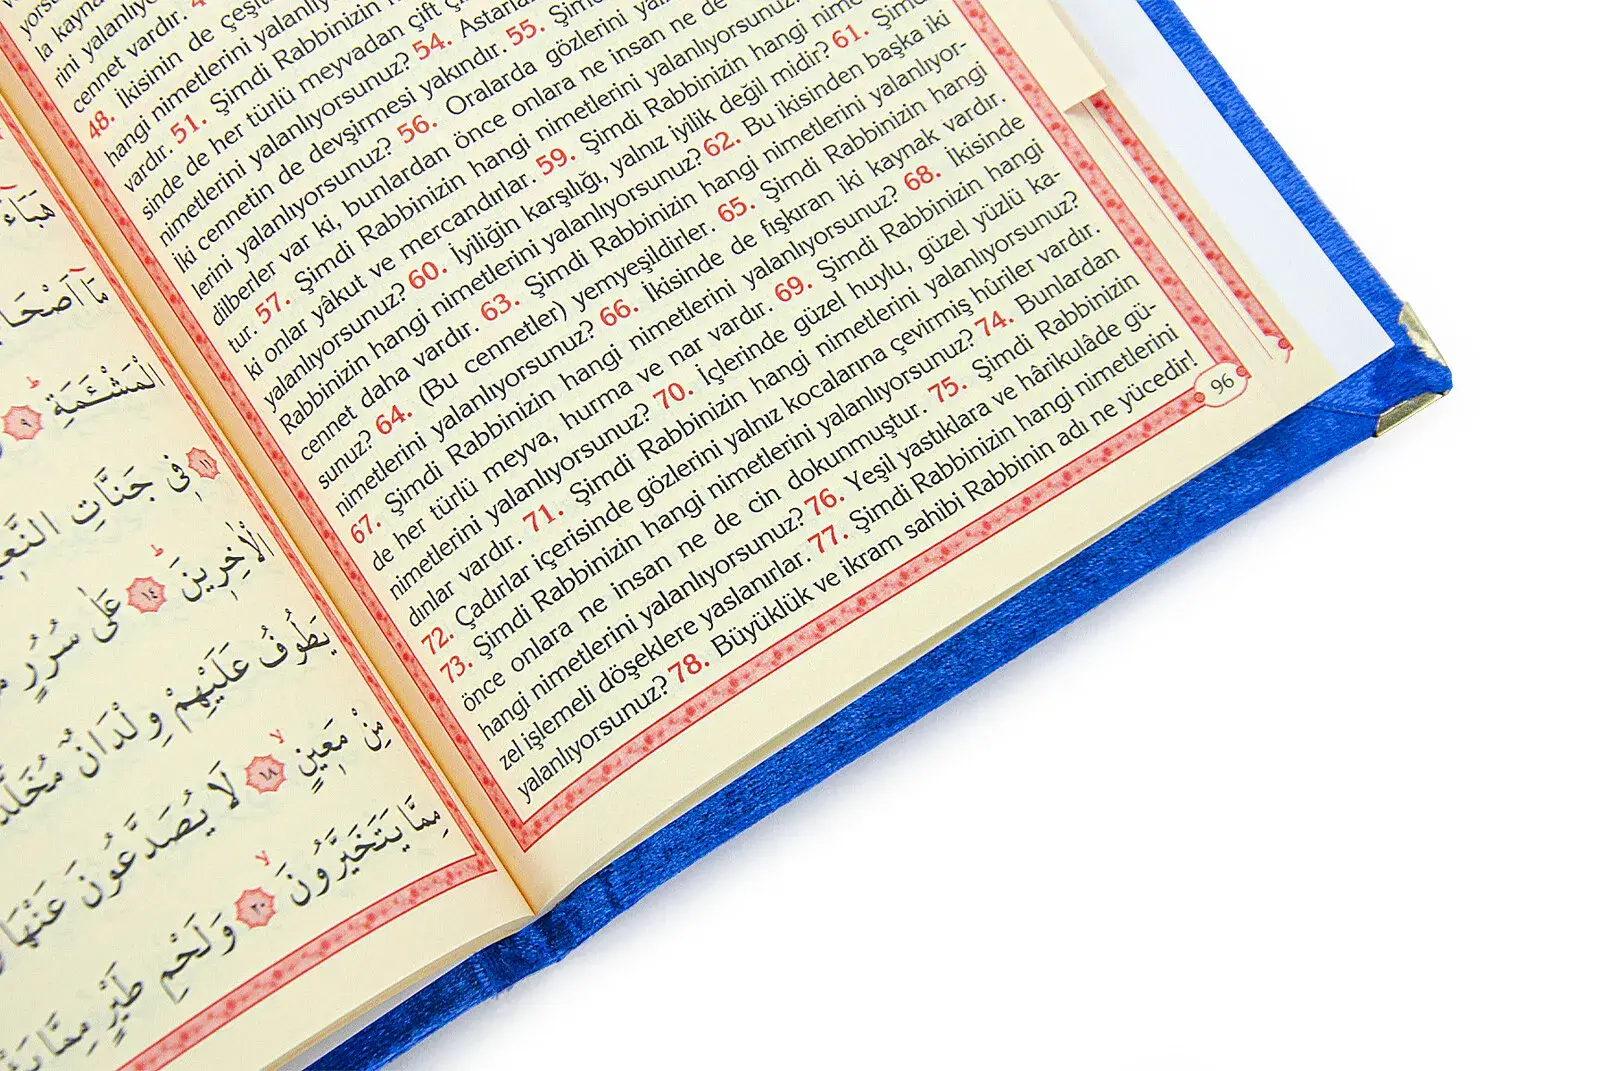 هَبَٓاءً
مَٓا اَصْحَا
الْمَشْـَٔمَةِ ٩
١١ ف۪ي جَنَّاتِ النَّع۪
الْاٰخِر۪ينَ ١٤ عَلٰى سُرُرٍ
يَطُوفُ عَلَيْهِمْ وِلْدَانٌ مُخَلَّدُ
مِنْ مَع۪ينٍ ١٨ لَا يُصَدَّعُونَ عَنْهَا
مِمَّا يَتَخَيَّرُونَ ٢٠ وَلَحْمِ طَيْرٍ مِمَّا
la kayna
rini yalanlıyo
cennet vardır.
48. İkisinin de çeşit
hangi nimetlerini yalanlıyors
vardır. 51. Şimdi Rabbinizin
sinde de her türlü meyvadan çift ç
nimetlerini yalanlıyorsunuz? 54. Astarla
İki cennetin de devşirmesi yakındır. 55. Şim
lerini yalanlıyorsunuz? 56. Oralarda gözlerini yal
dilberler var ki, bunlardan önce onlara ne insan ne de
tur. 57. Şimdi Rabbinizin hangi nimetlerini yalanlıyorsunuz.
ki onlar yâkut ve mercandırlar. 59. Şimdi Rabbinizin hangi nime
yalanlıyorsunuz? 60. İyiliğin karşılığı, yalnız iyilik değil midir? 61. Şimd
Rabbinizin hangi nimetlerini yalanlıyorsunuz? 62. Bu ikisinden başka iki
cennet daha vardır. 63. Şimdi Rabbinizin hangi nimetlerini yalanlıyor-
sunuz? 64. (Bu cennetler) yemyeşildirler. 65. Şimdi Rabbinizin hangi
nimetlerini yalanlıyorsunuz? 66. İkisinde de fışkıran iki kaynak vardır.
67. Şimdi Rabbinizin hangi nimetlerini yalanlıyorsunuz? 68. İkisinde
de her türlü meyva, hurma ve nar vardır. 69. Şimdi Rabbinizin hangi
nimetlerini yalanlıyorsunuz? 70. İçlerinde güzel huylu, güzel yüzlü ka-
dınlar vardır. 71. Şimdi Rabbinizin hangi nimetlerini yalanlıyorsunuz?
72. Çadırlar içerisinde gözlerini yalnız kocalarına çevirmiş hûriler vardır.
73. Şimdi Rabbinizin hangi nimetlerini yalanlıyorsunuz? 74. Bunlardan
önce onlara ne insan ne de cin dokunmuştur. 75. Şimdi Rabbinizin
hangi nimetlerini yalanlıyorsunuz? 76. Yeşil yastıklara ve hârikulâde gü-
zel işlemeli döşeklere yaslanırlar. 77. Şimdi Rabbinizin hangi nimetlerini
yalanlıyorsunuz? 78. Büyüklük ve ikram sahibi Rabbinin adı ne yücedir!
96